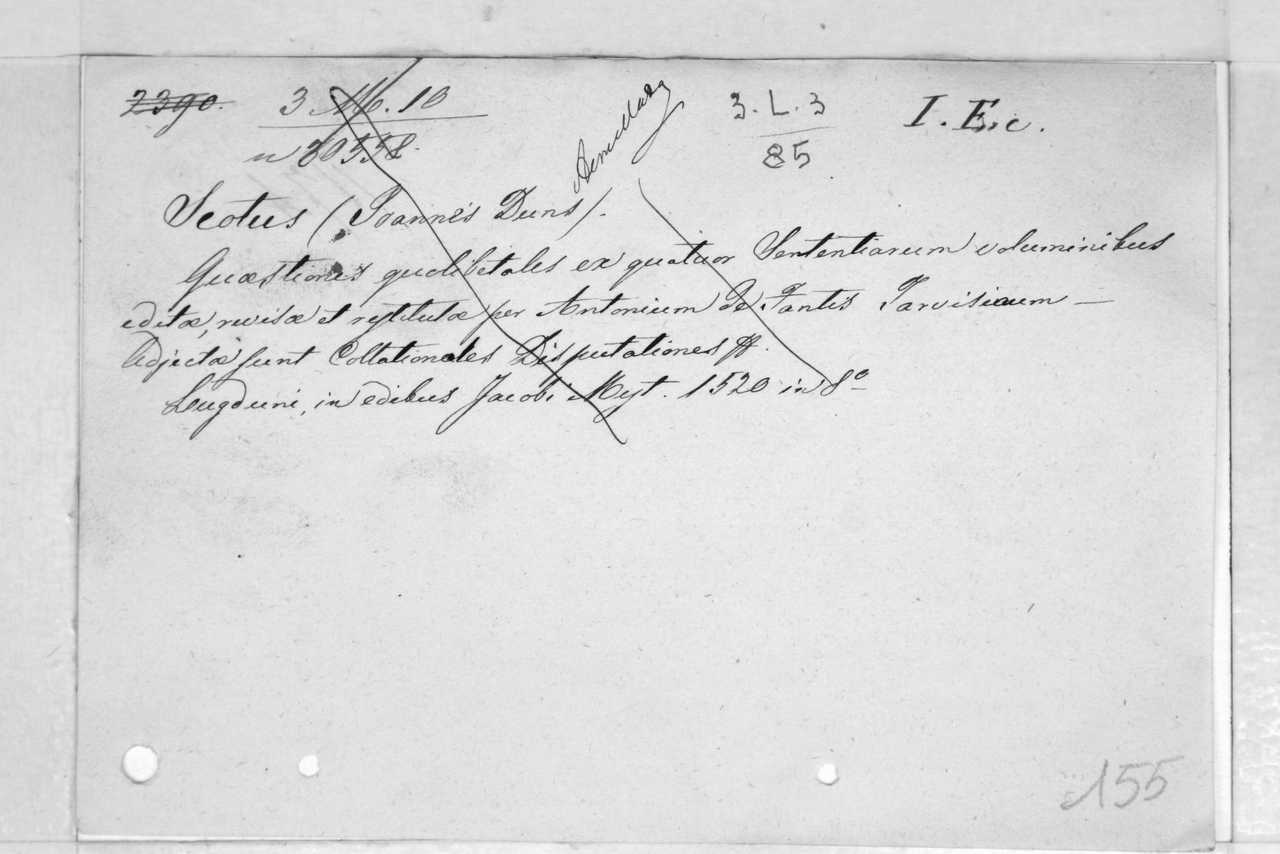 2390. 3 M. 10 3. L. 3 I. E. c.
n 30558. 85
Anulada
Scotus (Joannes Duns).
Quæstiones quolibetales ex quatuor Sententiarum voluminibus
editæ, revisæ et restitutæ per Antonium de Fantis Tarvisinum —
Adjectæ sunt Collationales Disputationes &.
Lugduni, in edibus Jacobi Myt. 1520 in 8º
155